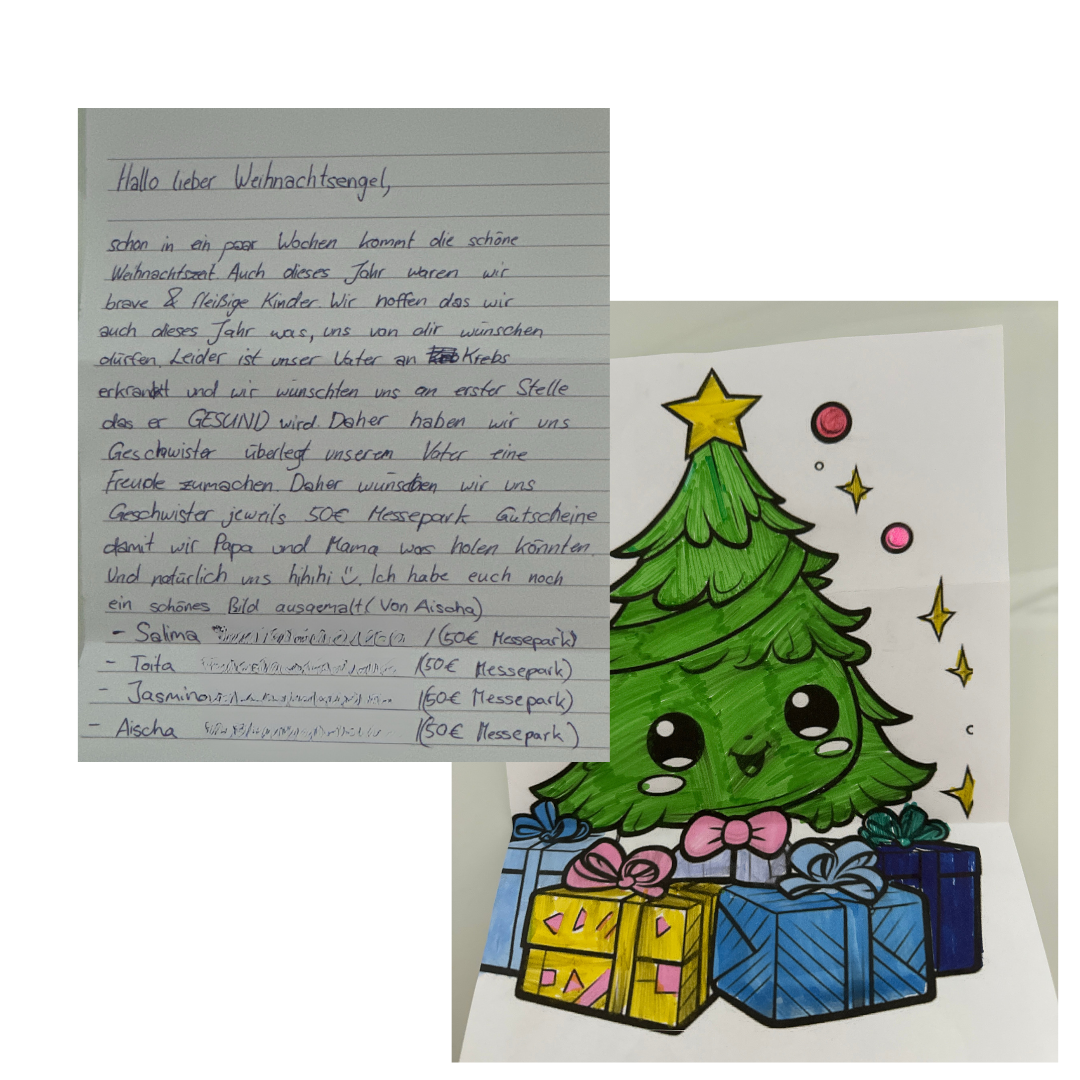 Hallo lieber Weihnachtsengel,
schon in ein paar Wochen kommt die schöne
Weihnachtszeit. Auch dieses Jahr waren wir
brave & fleißige Kinder. Wir hoffen das wir
auch dieses Jahr was, uns von dir wünschen
dürfen. Leider ist unser Vater an Krebs
erkrankt und wir wünschten uns an erster Stelle
das er GESUND wird. Daher haben wir uns
Geschwister überlegt unserem Vater eine
Freude zumachen. Daher wünschen wir uns
Geschwister jeweils 50€ Messepark Gutscheine
damit wir Papa und Mama was holen könnten.
Und natürlich uns hihihi Ich habe euch noch
ein schönes Bild ausgemalt (Von Aischa)
- Salima /(50€ Messepark)
- Toita /(50€ Messepark)
- Jasmina /(50€ Messepark)
- Aischa /(50€ Messepark)